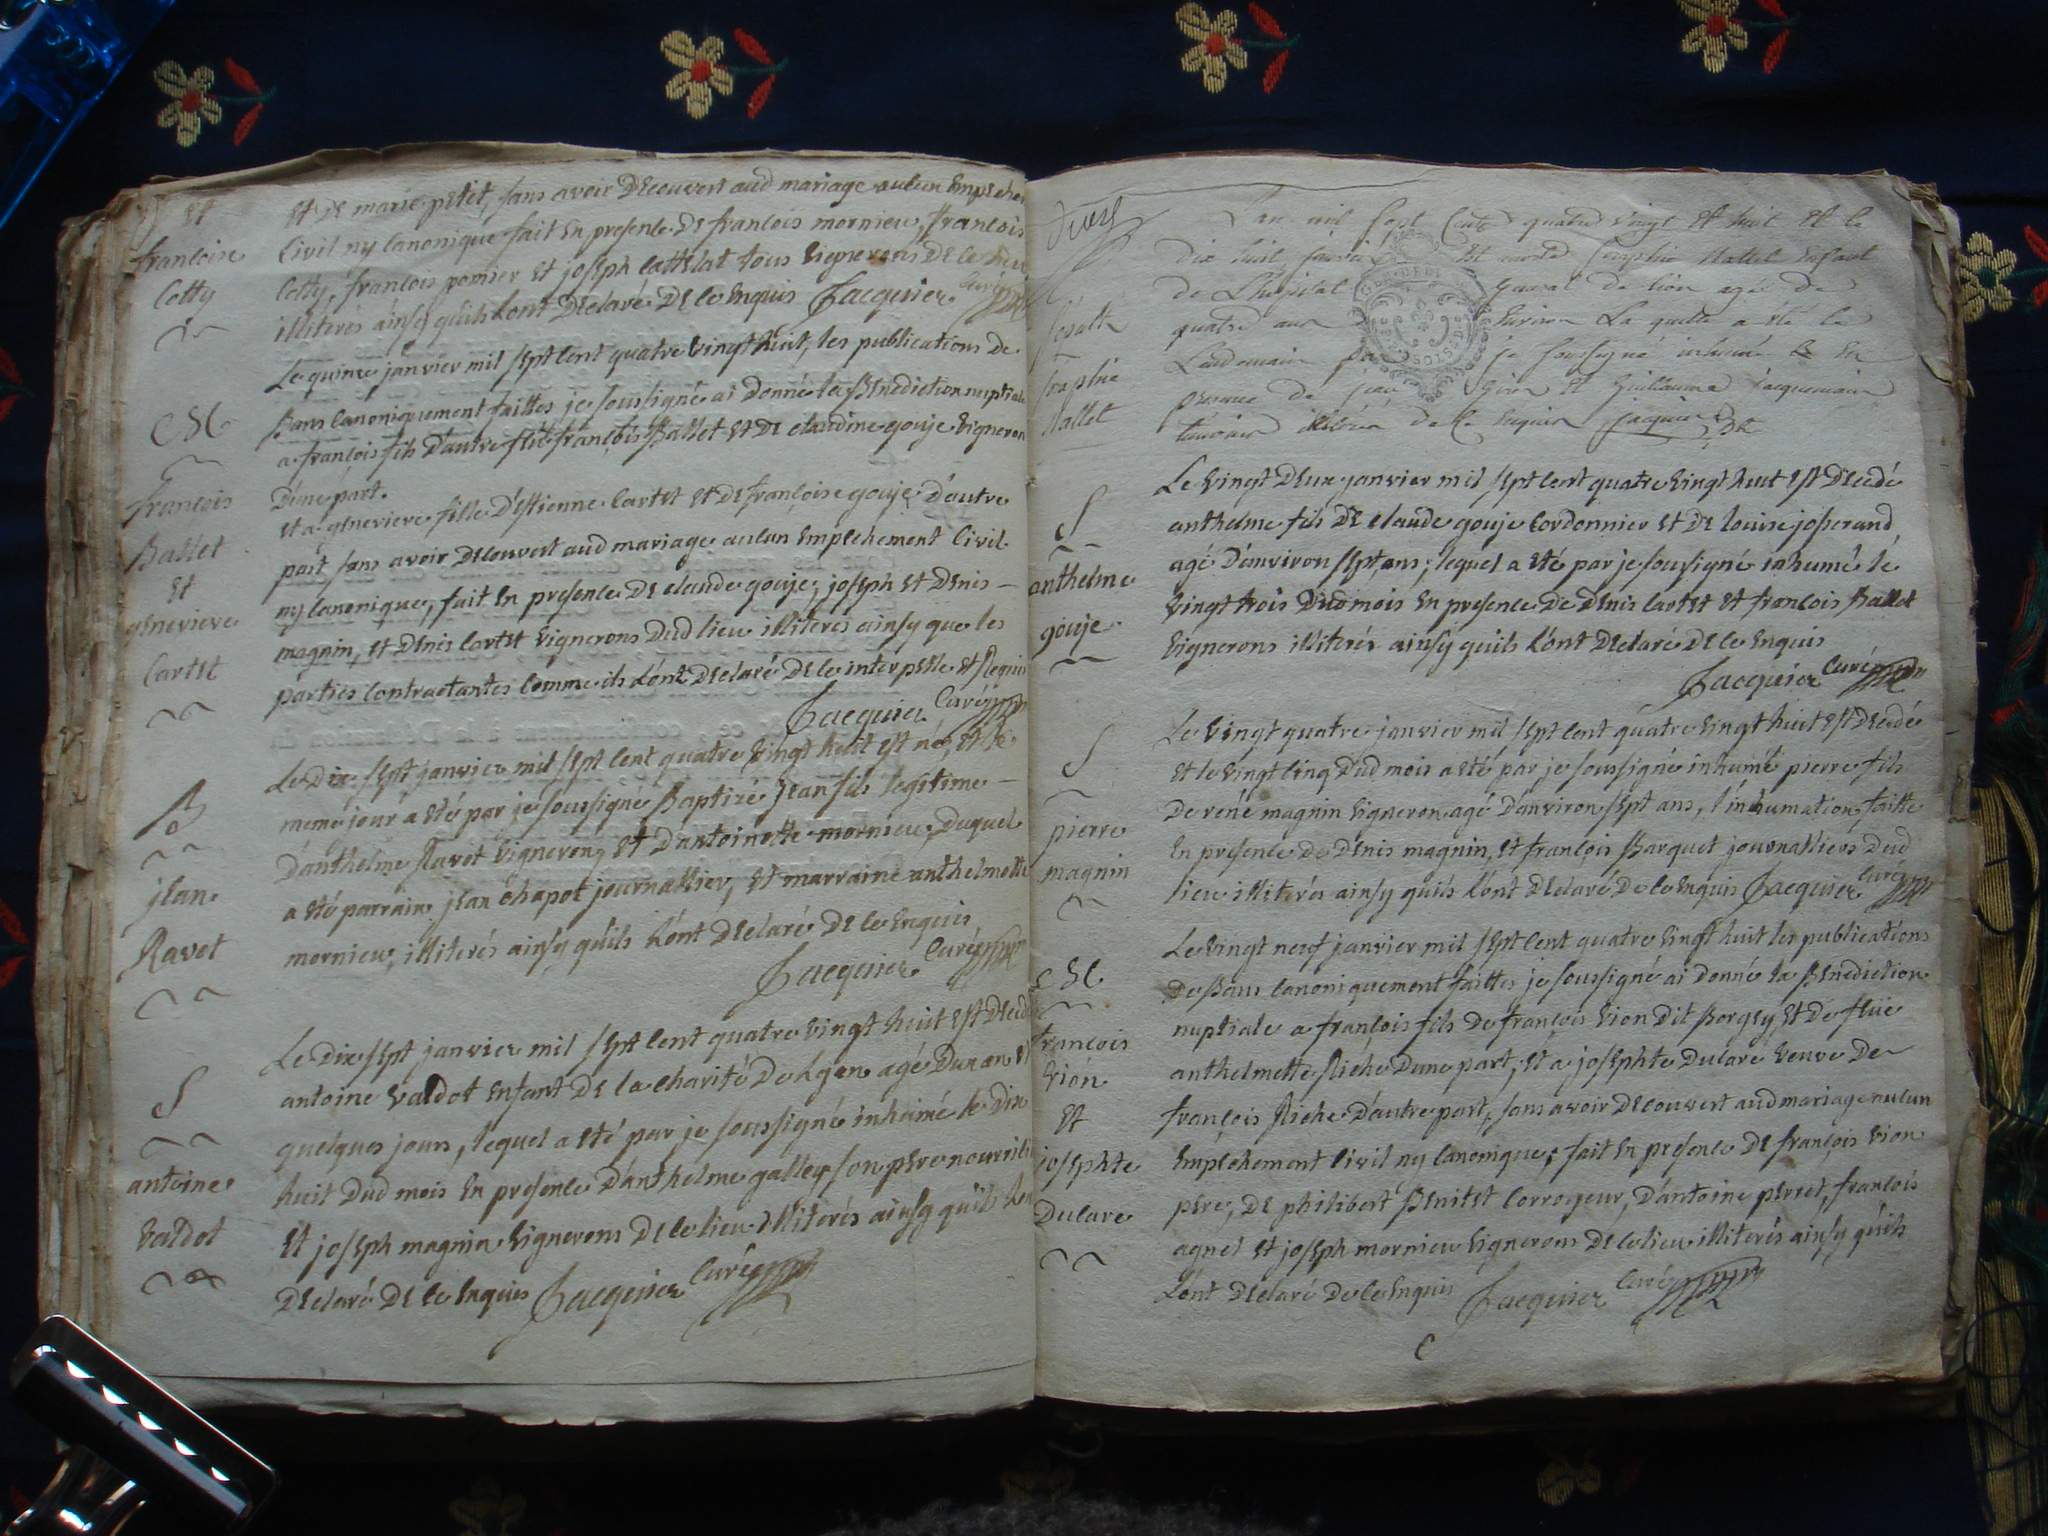 Et
françoise
Cotty
Et de marie petit, sans avoir decouvert aud mariage aucun Empeche
Civil ny Canonique fait En presence de françois mornieu, françois
Cotty, françois pomier Et joseph Cattelat tous vignerons de ce lieu
illiterés ainsy qu'ils Lont declaré de ce Enquis Jacquier Curé
M
françois
Ballet
Et
genevieve
Cartet
Le quinze janvier mil sept Cent quatre vingt huit, les publications de
Bans Canoniquement faittes je soussigné ai donné la Benediction nuptiale
a françois fils d'autre françois Ballet Et de claudine gouje vigneron
d'une part.
Et a genevieve fille d'Estienne Cartet Et de françoise gouje d'autre
part sans avoir decouvert aud mariage aucun Empechement Civil
ny Canonique, fait En presence de claude gouje, joseph Et denis
magnin, Et denis Cartet vignerons dud lieu illiterés ainsy que les
parties Contractantes Comme ils L'ont declaré de ce interpellé Et Requis
Jacquier Curé
B
jean
Ravet
Le dix sept janvier mil sept Cent quatre vingt huit Est né, Et le
meme jour a Eté par je soussigné Baptizé jean fils legitime
d'anthelme Ravet vigneron, Et d'antoinette mornieu, duquel
a Eté parrain jean chapot journallier, Et marraine anthelmette
mornieu, illiterés ainsy qu'ils L'ont declaré de ce Enquis
Jacquier Curé
S
antoine
valdot
Le dix sept janvier mil sept Cent quatre vingt huit Est decedé
antoine valdot Enfant de la charité de Lyon agé d'un an Et
quelques jours, lequel a Eté par je soussigné inhumé le dix
huit dud mois En presence d'anthelme galley son pere nourricier
Et joseph magnin vignerons de ce lieu illiterés ainsy qu'ils Lont
declaré de ce Enquis Jacquier Curé
L'an mil sept Cent quatre vingt Et huit Et le
dix huit janvier Est morte Seraphie Mallet Enfant
de L'hopital general de lion agé de
quatre ans Environ La quelle a été le
Lendemain par je soussigné inhumé En
presence de jean Et Guillaume jacquemain
illiterés de Ce Enquis jacquier
Seraphie
Mallet
S
anthelme
gouje
Le vingt deux janvier mil sept Cent quatre vingt huit Est decedé
anthelme fils de claude gouje Cordonnier Et de louise josserand
agé d'environ sept ans, lequel a Eté par je soussigné inhumé le
vingt trois dud mois En presence de denis Cartet Et françois Ballet
vignerons illiterés ainsy qu'ils L'ont declaré de ce Enquis
Jacquier Curé
S
pierre
magnin
Le vingt quatre janvier mil sept Cent quatre vingt huit Est decedé
Et le vingt Cinq dud mois a Eté par je soussigné inhumé pierre fils
de rené magnin vigneron agé d'anviron sept ans, l'inhumation faitte
En presence de denis magnin, Et françois Barquet journalliers dud
lieu illiterés ainsy qu'ils L'ont declaré de ce Enquis Jacquier Curé
M
françois
vion
Et
josephte
Ducare
Le vingt neuf janvier mil sept Cent quatre vingt huit les publications
de Bans Canoniquement faittes je soussigné ai donné la Benediction
nuptiale a françois fils de françois vion dit Borgey Et de flüe
anthelmette Riche d'une part, Et a josephte Ducare veuve de
françois Riche d'autre part, sans avoir decouvert aud mariage aucun
Empechement Civil ny Canonique, fait En presence de françois vion
pere, de philibert Benitet Corroyeur, d'antoine perret, françois
agnel Et joseph mornieu vignerons de ce lieu illiterés ainsy qu'ils
L'ont declaré de ce Enquis Jacquier Curé